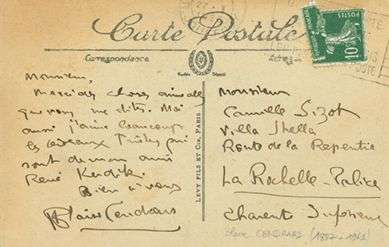 Carte Postale
Correspondance
Adresse
POSTES
10
LEVY FILS ET Cie, PARIS
Monsieur,
Merci des choses aimables
que vous me dites. Moi
aussi j'aime beaucoup
les Oiseaux Tristes qui
sont de mon ami
René Kerdyk.
Bien à vous
Blaise Cendrars
Monsieur
Camille Sizot
Villa Stella
Route de la Repentie
La Rochelle-Palice
Charente Inférieure
Blaise CENDRARS (1887-1961)